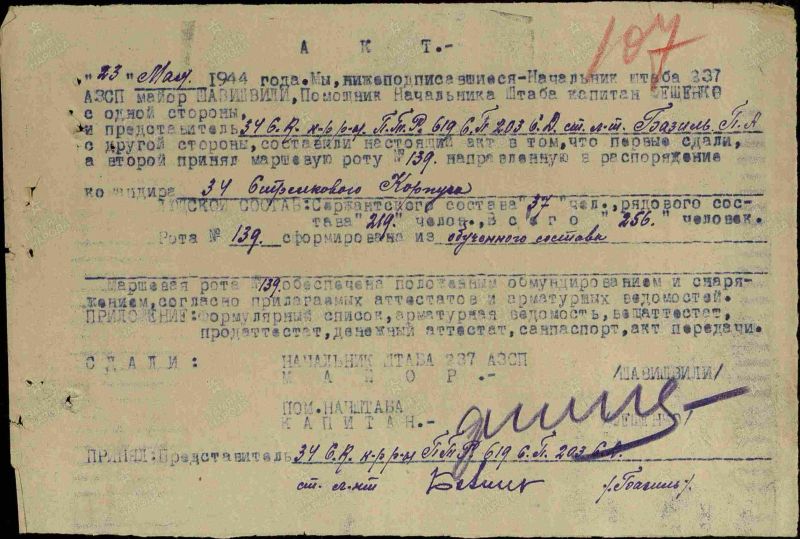 107
А К Т.-
"23" Мая 1944 года.Мы,нижеподписавшиеся-Начальник штаба 237
АЗСП майор ШАВИШВИЛИ,Помощник Начальника Штаба капитан ЛЕШЕНКО
с одной стороны,
и представитель 34 С.К. к-р р-ы П.Т.Р. 619 С.П 203 С.Д. ст. л-т. Бозиль П.А
с другой стороны,составили настоящий акт в том,что первые сдали,
а второй принял маршевую роту № 139. направленную в распоряжение
командира 34 Стрелкового Корпуса
ЛЮДСКОЙ СОСТАВ:Сержантского состава "37" чел.,рядового сос-
тава "219." челов.,В с е г о "256." человек.
Рота № 139. сформирована из обученного состава
Маршевая рота № 139 обеспечена положенным обмундированием и снаря-
жением,согласно прилагаемых аттестатов и арматурных ведомостей.
ПРИЛОЖЕНИЕ:Формулярный список,арматурная ведомость,вещаттестат,
продаттестат,денежный аттестат,санпаспорт,акт передачи.
С Д А Л И : НАЧАЛЬНИК ШТАБА 237 АЗСП
М А Й О Р .- /ШАВИШВИЛИ/
ПОМ.НАЧШТАБА
К А П И Т А Н .- /ЛЕШЕНКО/
ПРИНЯЛ:Представитель 34 С.К. к-р р-ы П.Т.Р. 619 С.П. 203 С.Д.
ст. л-нт /Бозиль/.